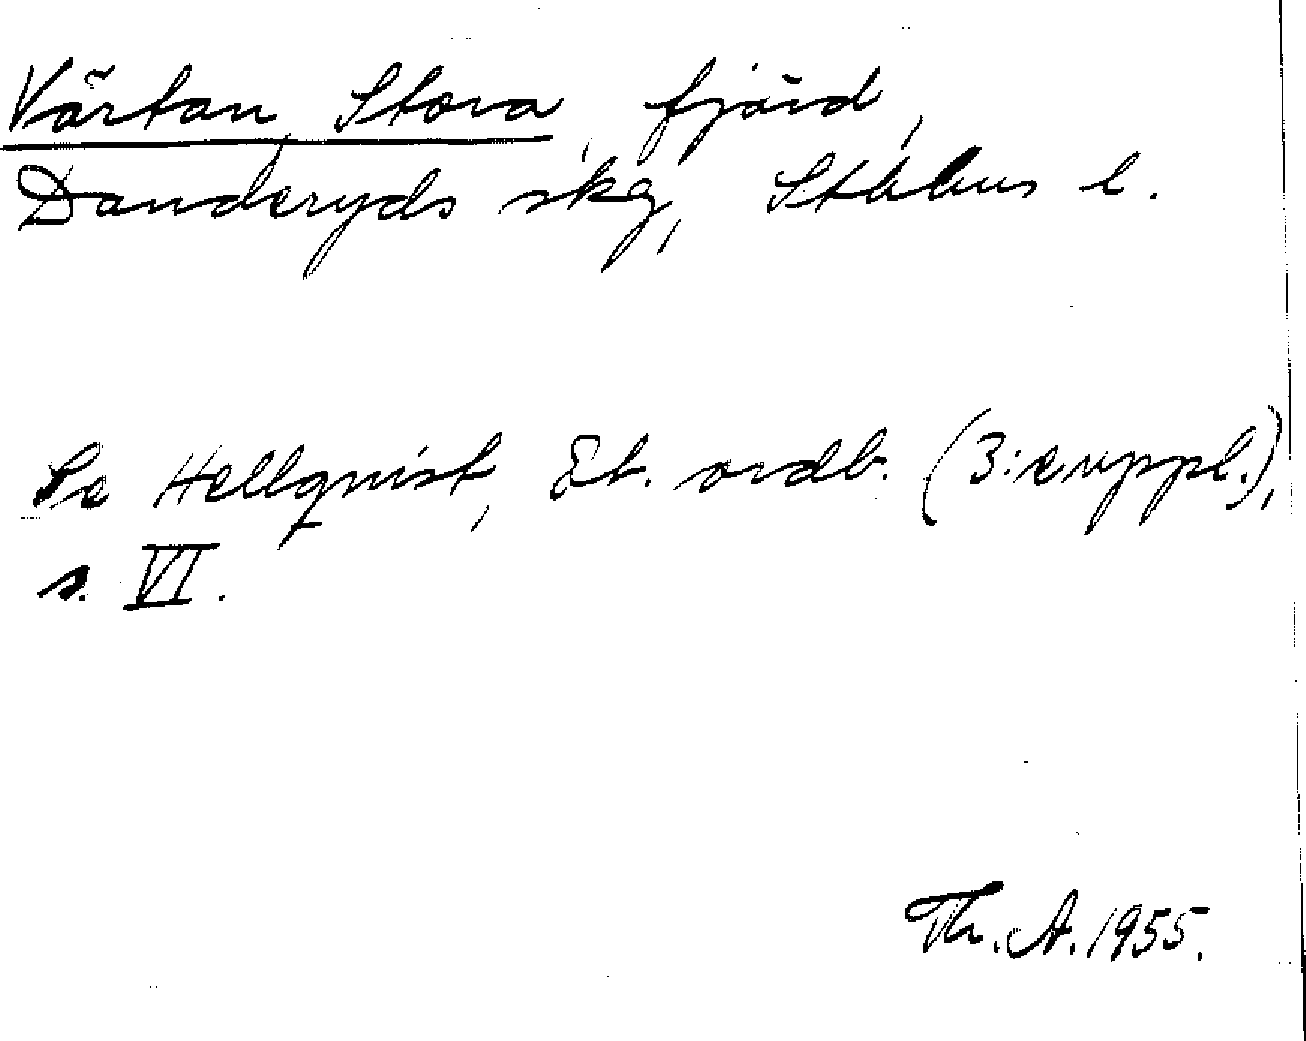 Värtan, Stora, fjärd,
Danderyds skg, Sthlms l.
Se Hellqvist, Et. ordb. (3:e uppl.),
s. VI.
Th. A. 1955.